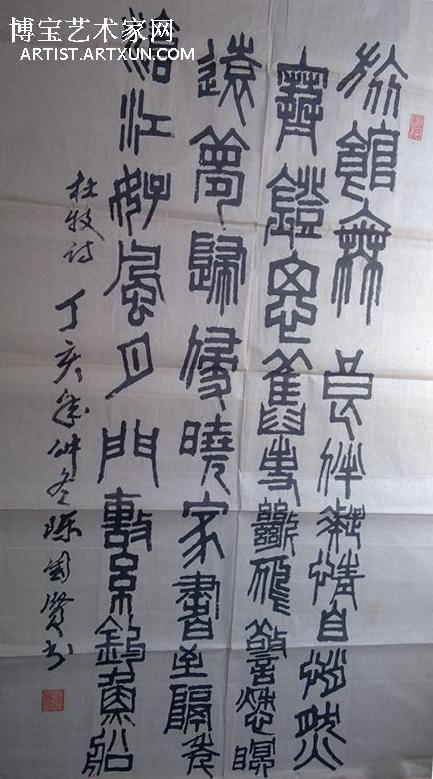 博宝艺术家网
ARTIST.ARTXUN.COM
旅館無良伴凝情自悄然
寒鐙思舊事斷雁警愁瞑
遠夢歸侵曉家書至隔年
滄江好風月門繫釣魚船
杜牧诗
丁亥年仲冬陈国贤书